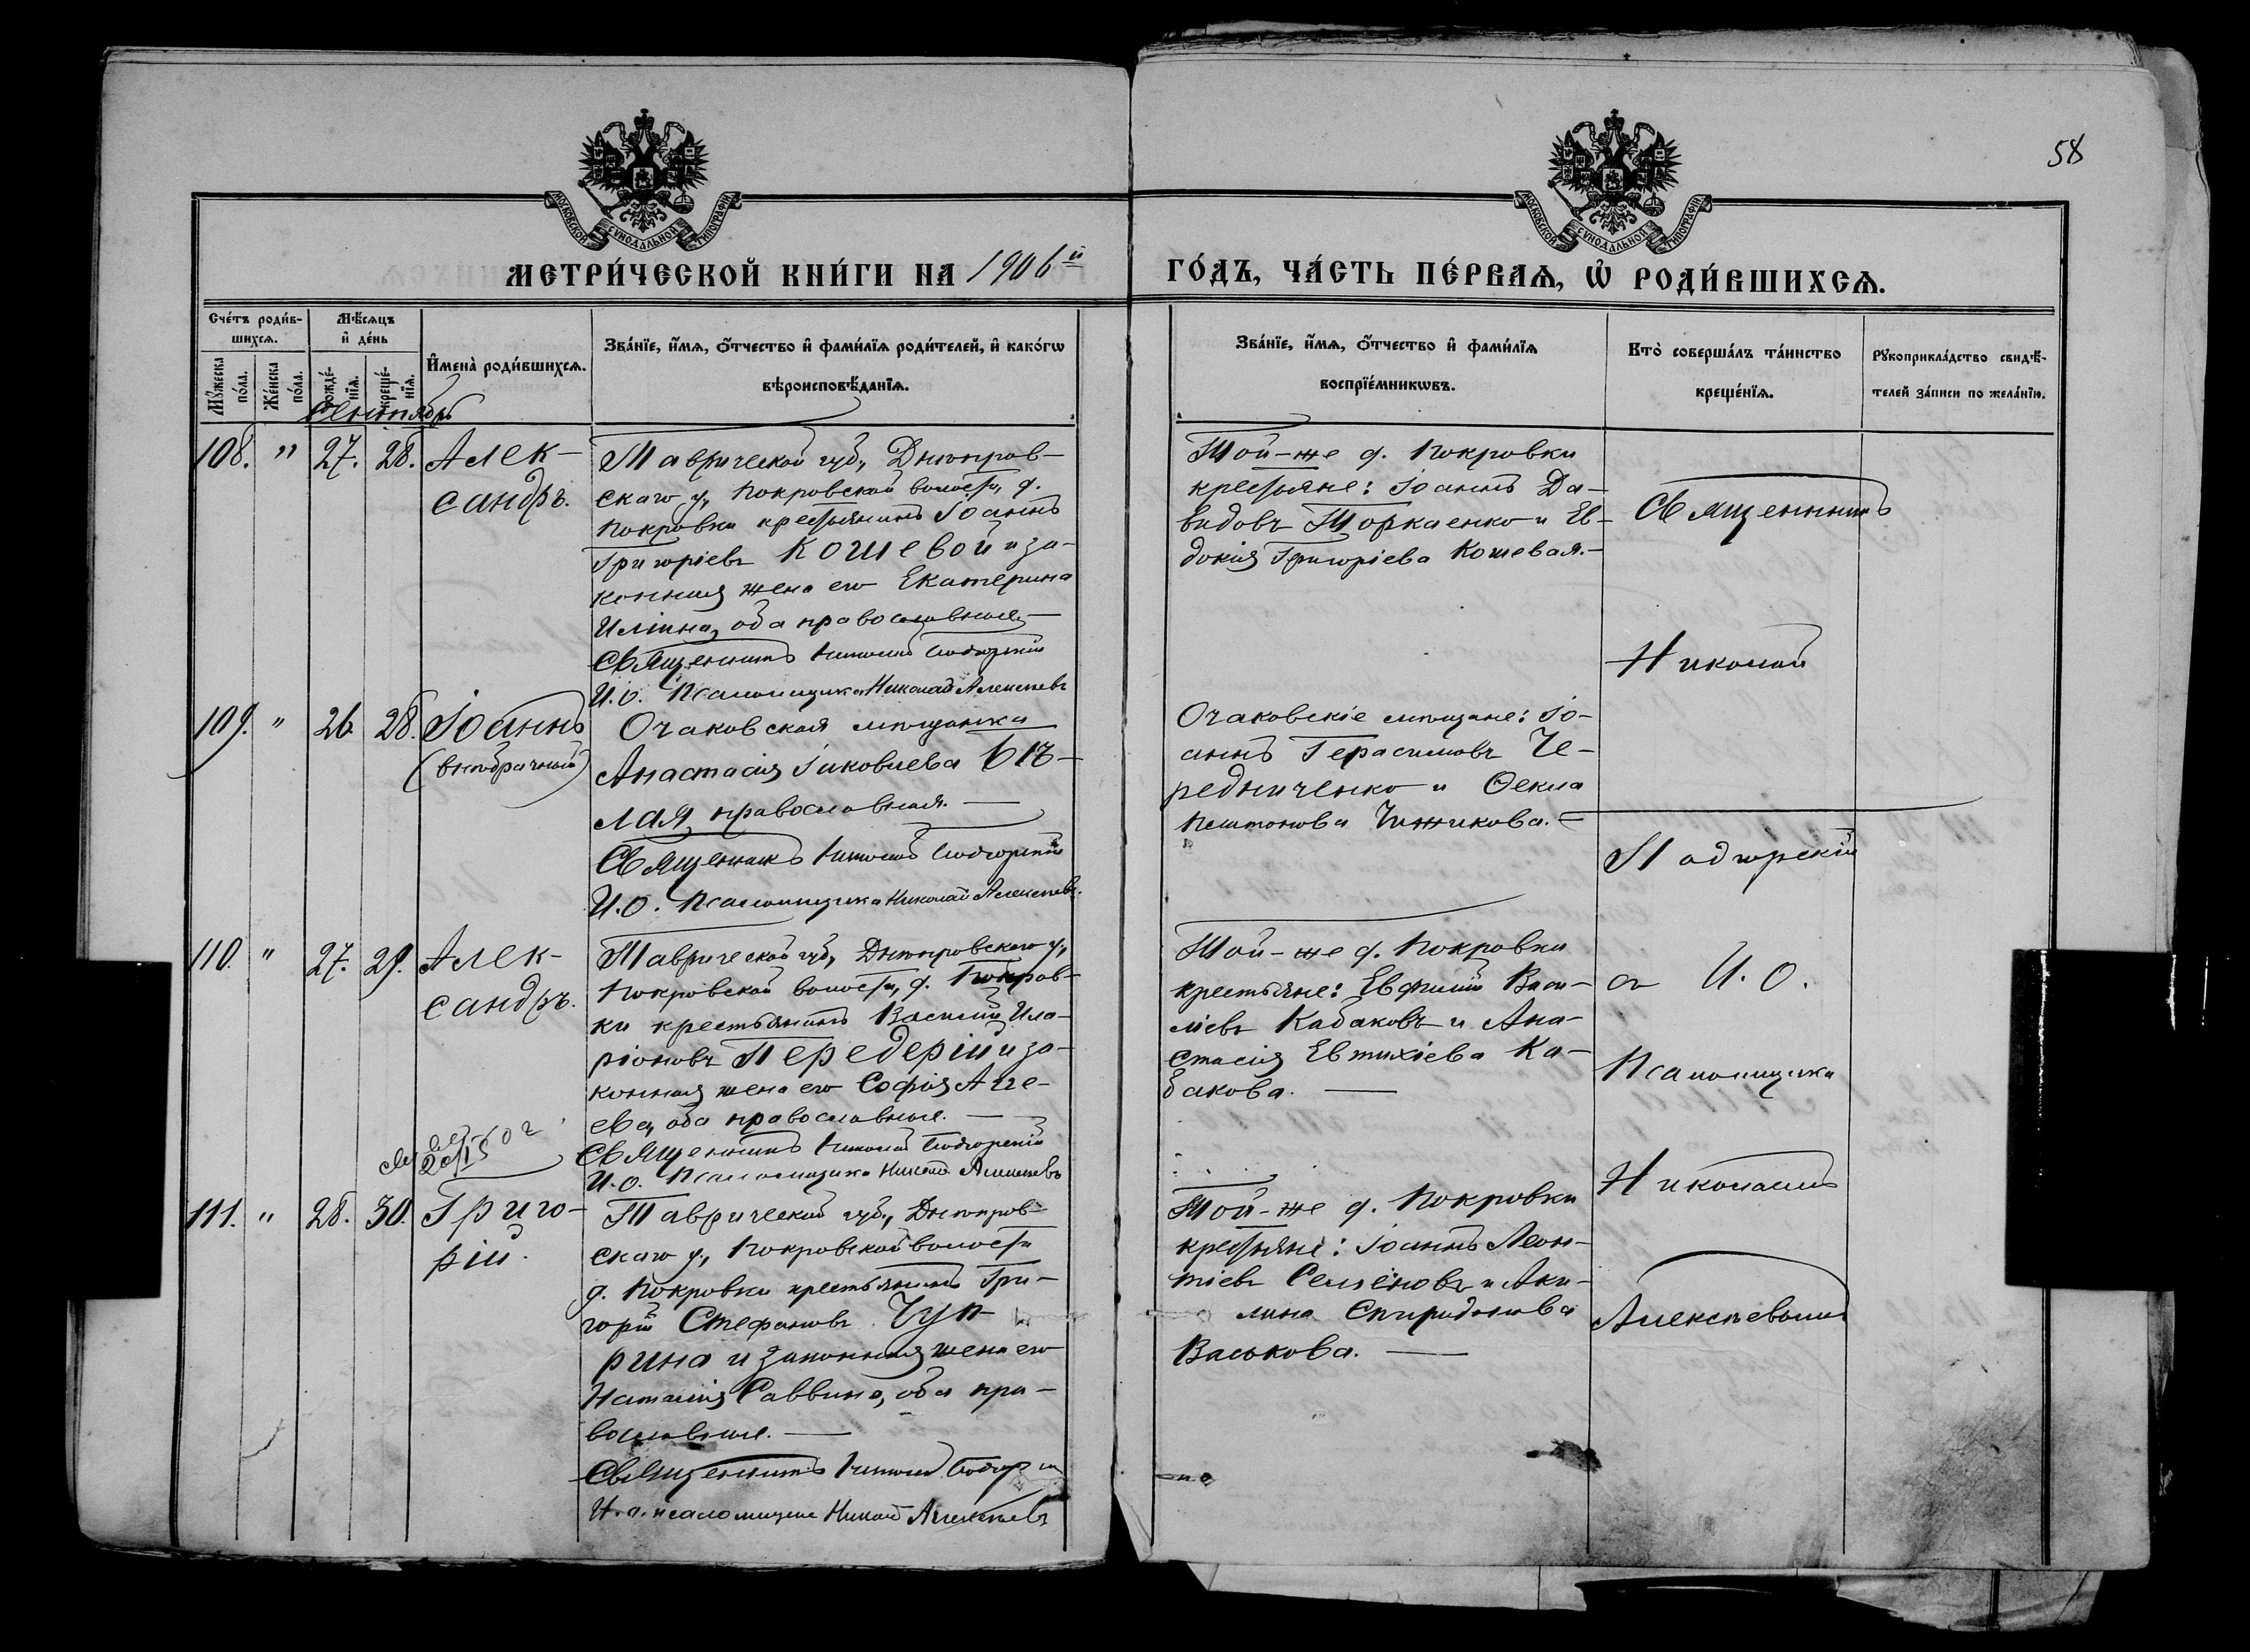 58
МОСКОВСКОЙ СУНОДАЛЬНОЙ ТИПОГРАФІИ
МОСКОВСКОЙ СУНОДАЛЬНОЙ ТИПОГРАФІИ
МЕТРИ́ЧЕСКОЙ КНИ́ГИ НА 1906й
ГО́ДЪ, ЧА́СТЬ ПЕ́РВАѦ, Ѡ РОДИ́ВШИХСѦ.
Сче́тъ роди́в-
шихсѧ.
Мѣ́сѧцъ
и҆ де́нь
Мꙋ́жеска
по́ла.
Же́нска
по́ла.
рожде́-
нїѧ.
креще́-
нїѧ.
И҆мена̀ роди́вшихсѧ.
Зва́нїе, и҆́мѧ, ѻ҆́тчество и҆ фами́лїѧ роди́телей, и҆ како́гѡ
вѣроисповѣ́данїѧ.
Зва́нїе, и҆́мѧ, ѻ҆́тчество и҆ фами́лїѧ
воспрїе́мникѡвъ.
Кто̀ соверша́лъ та́инство
креще́нїѧ.
Рꙋкоприкла́дство свидѣ́-
телей за́писи по жела́нїю.
Сентябрь
108. " 27. 28. Алек-
сандръ.
Таврической губ., Днѣпров-
скаго у., Покровской волости, д.
Покровки крестьянинъ Іоаннъ
Григоріевъ Кошевой и за-
конная жена его Екатерина
Иліина, оба православные.—
Священникъ Николай Подгорскій
И.о. Псаломщика Николай Алексѣевъ
Той-же д. Покровки
крестьяне: Іоаннъ Да-
видовъ Торкаенко и Ев-
докія Григоріева Кошевая.—
Священникъ
Николай
Подгорскій
съ И. О.
Псаломщика
Николаемъ
Алексѣевымъ
109. " 26. 28. Іоаннъ
(внѣбрачный)
Очаковская мѣщанка
Анастасія Іаковлева Бѣ-
лая, православная.—
Священникъ Николай Подгорскій
И.О. Псаломщика Николай Алексѣевъ.
Очаковскіе мѣщане: Іо-
аннъ Герасимовъ Че-
редниченко и Ѳекла
Чижикова.—
110. " 27. 29. Алек-
сандръ.
Таврической губ., Днѣпровскаго у.,
Покровской волости, д. Покров-
ки крестьянинъ Василій Ила-
ріоновъ Передерій и за-
конная жена его Софія Агге-
ева, оба православные.—
Священникъ Николай Подгорскій
И.о. Псаломщика Николай Алексѣевъ
Той-же д. Покровки
крестьяне: Евфимій Васи-
ліевъ Кабаковъ и Ана-
стасія Евтихіева Ка-
бакова.—
111. " 28. 30. Григо-
рій.
Таврической губ., Днѣпров-
скаго у., Покровской волости
д. Покровки крестьянинъ Гри-
горій Стефановъ Чуп-
рина и законная жена его
Наталія Саввина, оба пра-
вославные.—
Священникъ Николай
И.о. псаломщика Николай Алексѣевъ
Той-же д. Покровки
крестьяне: Іоаннъ Леон-
тіевъ Семёновъ и Аки-
лина Спиридонова
Васькова.—